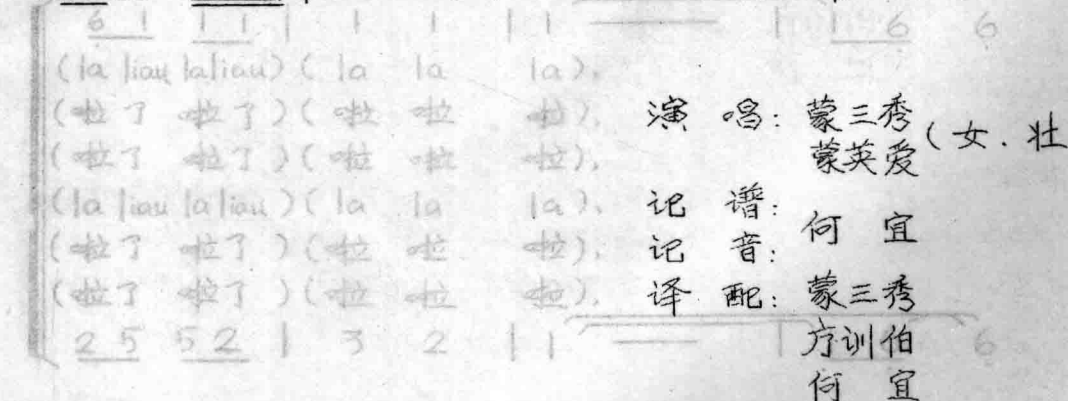 6 1 1 1 | 1 1 | 1 | 1 6 6
(la liau laliau) ( la la la),
(啦了 啦了) ( 啦 啦 啦),
(啦了 啦了) ( 啦 啦 啦),
(la liau la liau) ( la la la),
(啦了 啦了) ( 啦 啦 啦),
(啦了 啦了) ( 啦 啦 啦),
2 5 5 2 | 3 2 | 1 | 6
演 唱: 蒙三秀
蒙英爱 (女.壮
记 谱:
记 音: 何 宜
译 配: 蒙三秀
训伯
何 宜